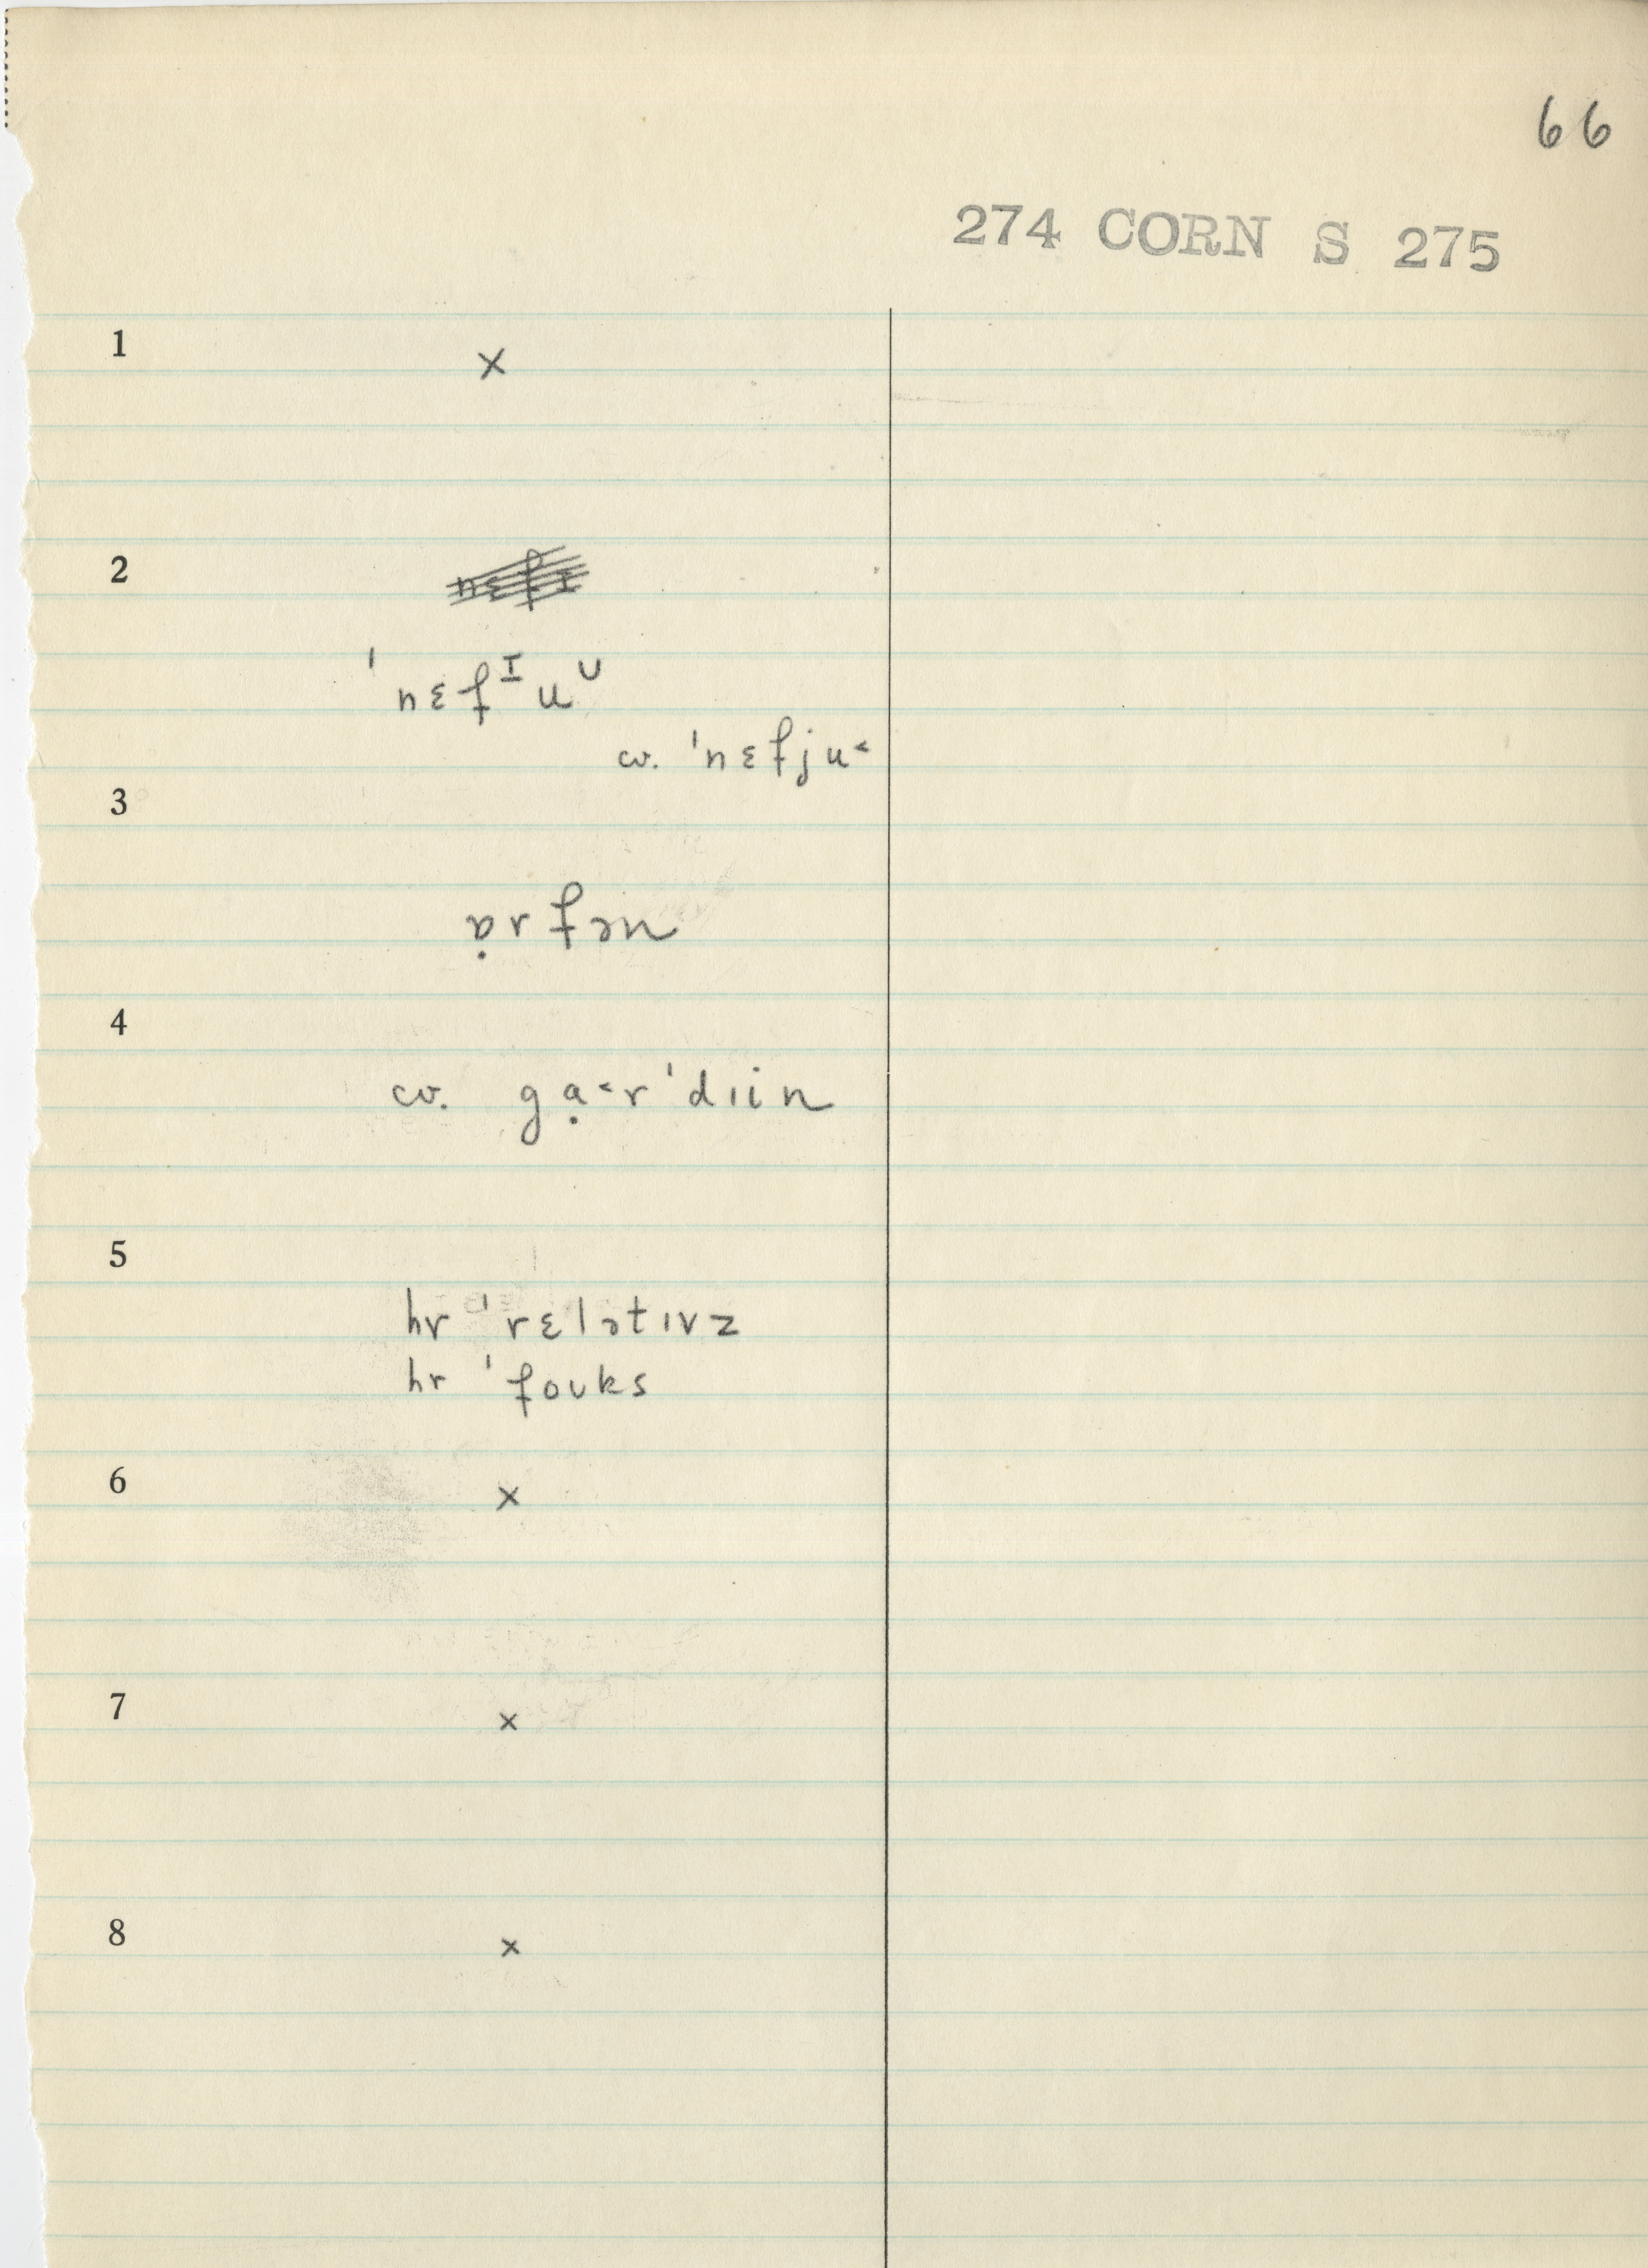 66
274 CORN S 275
1 ×
2 nɛfɪ
ˈnɛfᴵuᵁ
cv. ˈnɛfju˂
3
ɒ̣rfən
4
cv. gạ˂rˈdɪin
5
hr ˈrɛlətɪvz
hr ˈfoʊks
6 ×
7 ×
8 ×